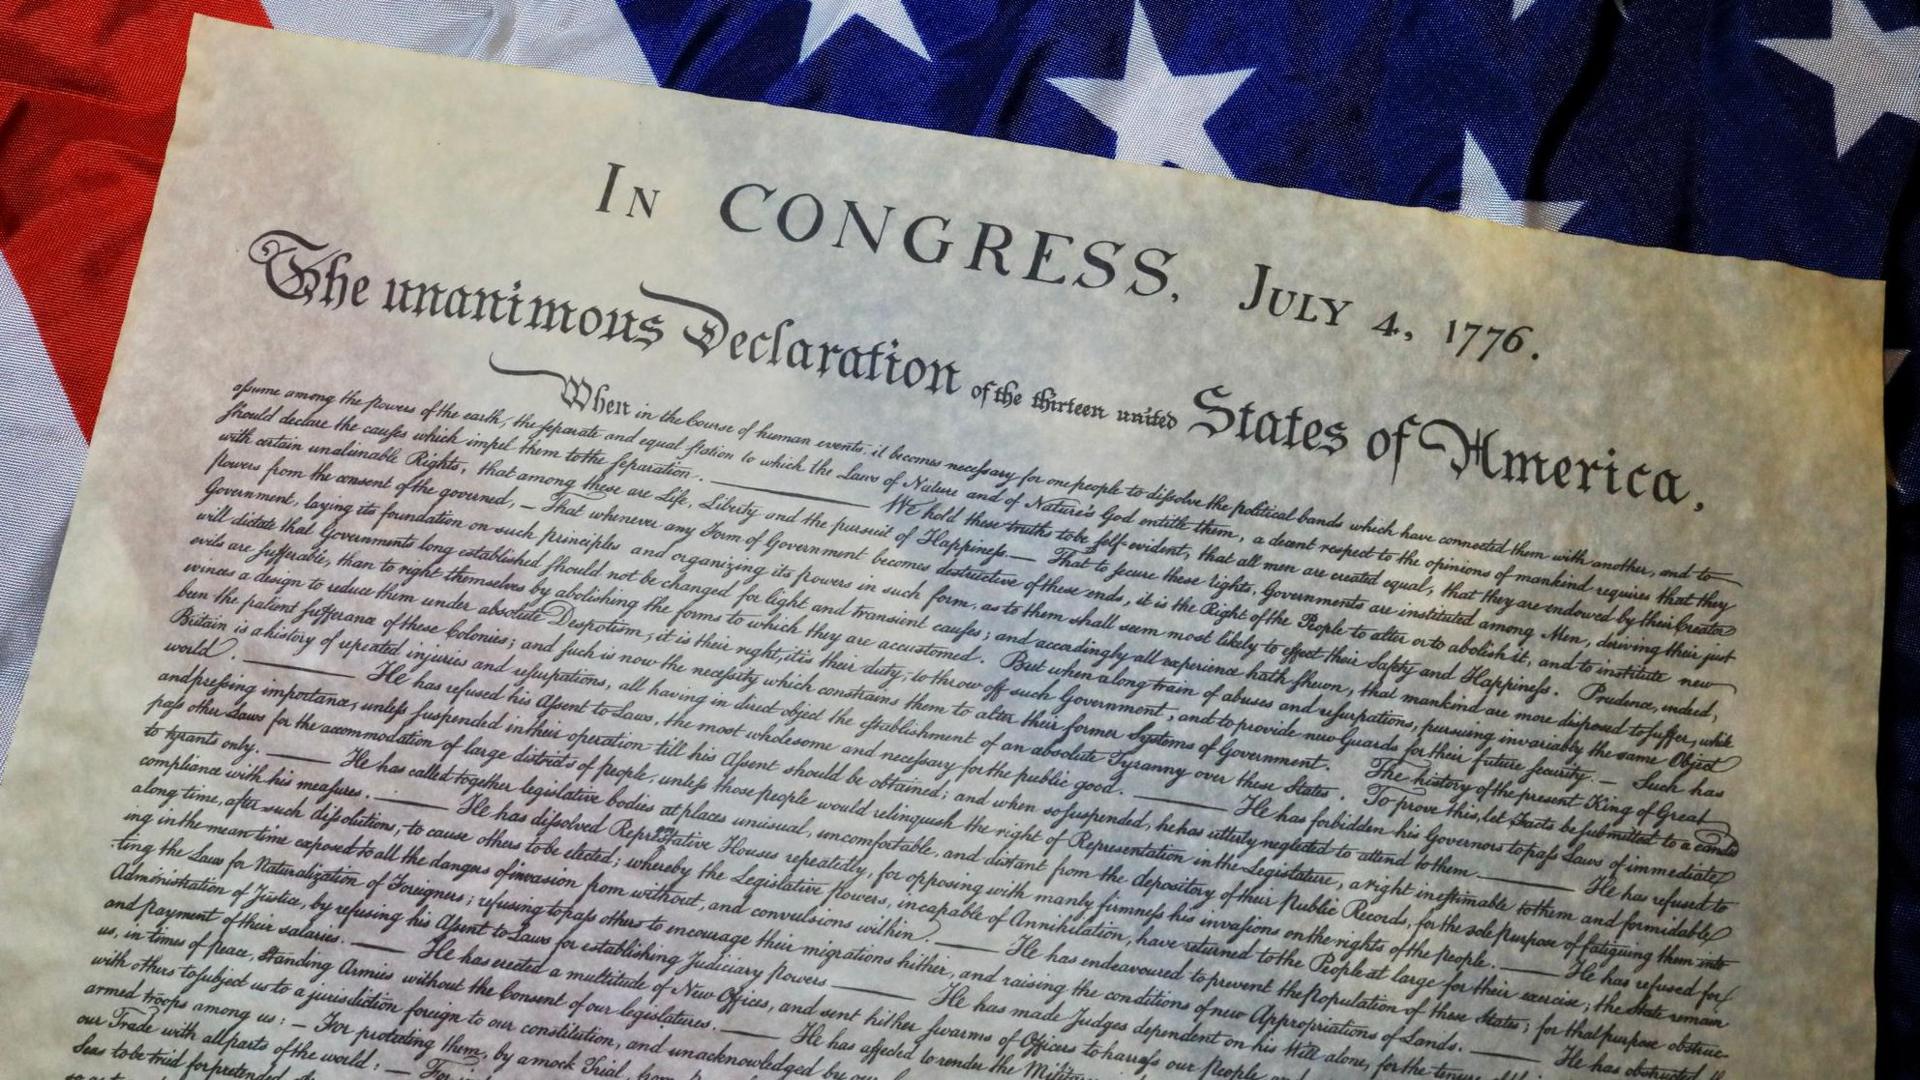 In CONGRESS, July 4, 1776.
The unanimous Declaration of the thirteen united States of America,
When in the Course of human events, it becomes necessary for one people to dissolve the political bands which have connected them with another, and to
assume among the powers of the earth, the separate and equal station to which the Laws of Nature and of Nature's God entitle them, a decent respect to the opinions of mankind requires that they
should declare the causes which impel them to the separation. ——— We hold these truths to be self-evident, that all men are created equal, that they are endowed by their Creator
with certain unalienable Rights, that among these are Life, Liberty and the pursuit of Happiness.— That to secure these rights, Governments are instituted among Men, deriving their just
powers from the consent of the governed, — That whenever any Form of Government becomes destructive of these ends, it is the Right of the People to alter or to abolish it, and to institute new
Government, laying its foundation on such principles and organizing its powers in such form, as to them shall seem most likely to effect their Safety and Happiness. Prudence, indeed,
will dictate that Governments long established should not be changed for light and transient causes; and accordingly all experience hath shewn, that mankind are more disposed to suffer, while
evils are sufferable, than to right themselves by abolishing the forms to which they are accustomed. But when a long train of abuses and usurpations, pursuing invariably the same Object
evinces a design to reduce them under absolute Despotism, it is their right, it is their duty, to throw off such Government, and to provide new Guards for their future security.— Such has
been the patient sufferance of these Colonies; and such is now the necessity which constrains them to alter their former Systems of Government. The history of the present King of Great
Britain is a history of repeated injuries and usurpations, all having in direct object the establishment of an absolute Tyranny over these States. To prove this, let Facts be submitted to a candid
world. ——— He has refused his Assent to Laws, the most wholesome and necessary for the public good. ——— He has forbidden his Governors to pass Laws of immediate
and pressing importance, unless suspended in their operation till his Assent should be obtained; and when so suspended, he has utterly neglected to attend to them. ——— He has refused to
pass other Laws for the accommodation of large districts of people, unless those people would relinquish the right of Representation in the Legislature, a right inestimable to them and formidable
to tyrants only. ——— He has called together legislative bodies at places unusual, uncomfortable, and distant from the depository of their Public Records, for the sole purpose of fatiguing them into
compliance with his measures. ——— He has dissolved Representative Houses repeatedly, for opposing with manly firmness his invasions on the rights of the people. ——— He has refused for
a long time, after such dissolutions, to cause others to be elected; whereby the Legislative powers, incapable of Annihilation, have returned to the People at large for their exercise; the State remain-
ing in the mean time exposed to all the dangers of invasion from without, and convulsions within. ——— He has endeavoured to prevent the population of these States; for that purpose obstruc-
ting the Laws for Naturalization of Foreigners; refusing to pass others to encourage their migrations hither, and raising the conditions of new Appropriations of Lands. ——— He has obstructed
Administration of Justice, by refusing his Assent to Laws for establishing Judiciary powers ——— He has made Judges dependent on his Will alone, for the tenure
and payment of their salaries. ——— He has erected a multitude of New Offices, and sent hither swarms of Officers to harrass our People and
us, in times of peace, Standing Armies without the Consent of our legislatures. ——— He has affected to render the Military
with others to subject us to a jurisdiction foreign to our constitution, and unacknowledged by our
armed troops among us: — For protecting them, by a mock Trial,
our Trade with all parts of the world: — For
Seas to be tried for pretended